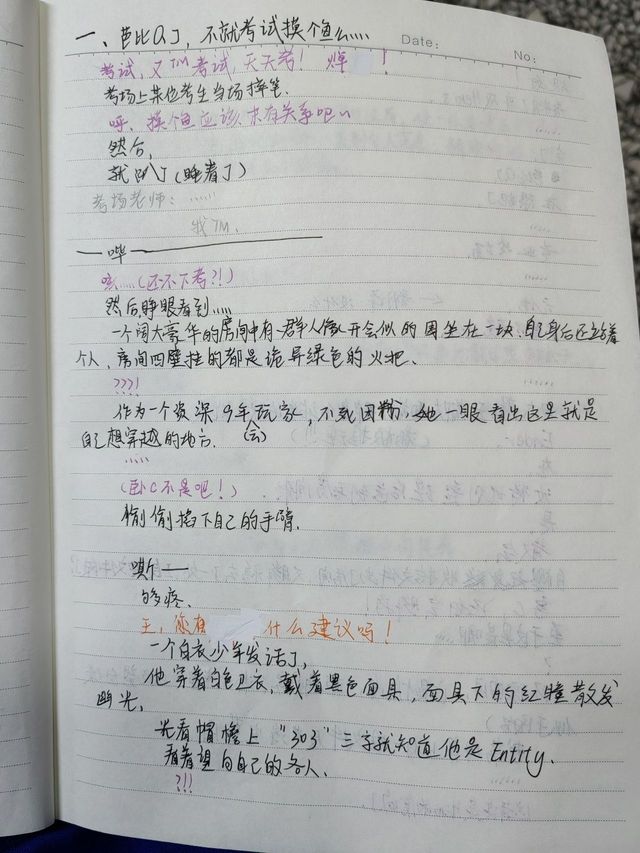 一、芭比Q了，不就考试摸个鱼么....
Date:
No:
考试，又TM考试，天天考！烨 ！
考场上某位考生当场摔笔.
呼、摸个鱼应该没有关系吧~
然后,
就趴了(睡着了)
考场老师: ......
我TM.
一哔——
咳....(还不下考?!)
然后睁眼看到.....
一个阔大豪华的房间中有一群人像开会似的围坐在一块、自己身后还站着
个人，房间四壁挂的都是诡异绿色的火把.
???!
作为一个资深9年玩家，不死因粉，她一眼看出这里就是
自己想穿越的地方. (会)
.....
(卧C不是吧！)
偷偷掐下自己的手臂.
嘶——
够疼.
王，您有 什么建议吗！
一个白衣少年发话了,
他穿着白色卫衣，戴着黑色面具，面具下的红瞳散发
幽光,
光看帽檐上 "303" 三字就知道他是 Entity.
看着望向自己的各人.
?!!